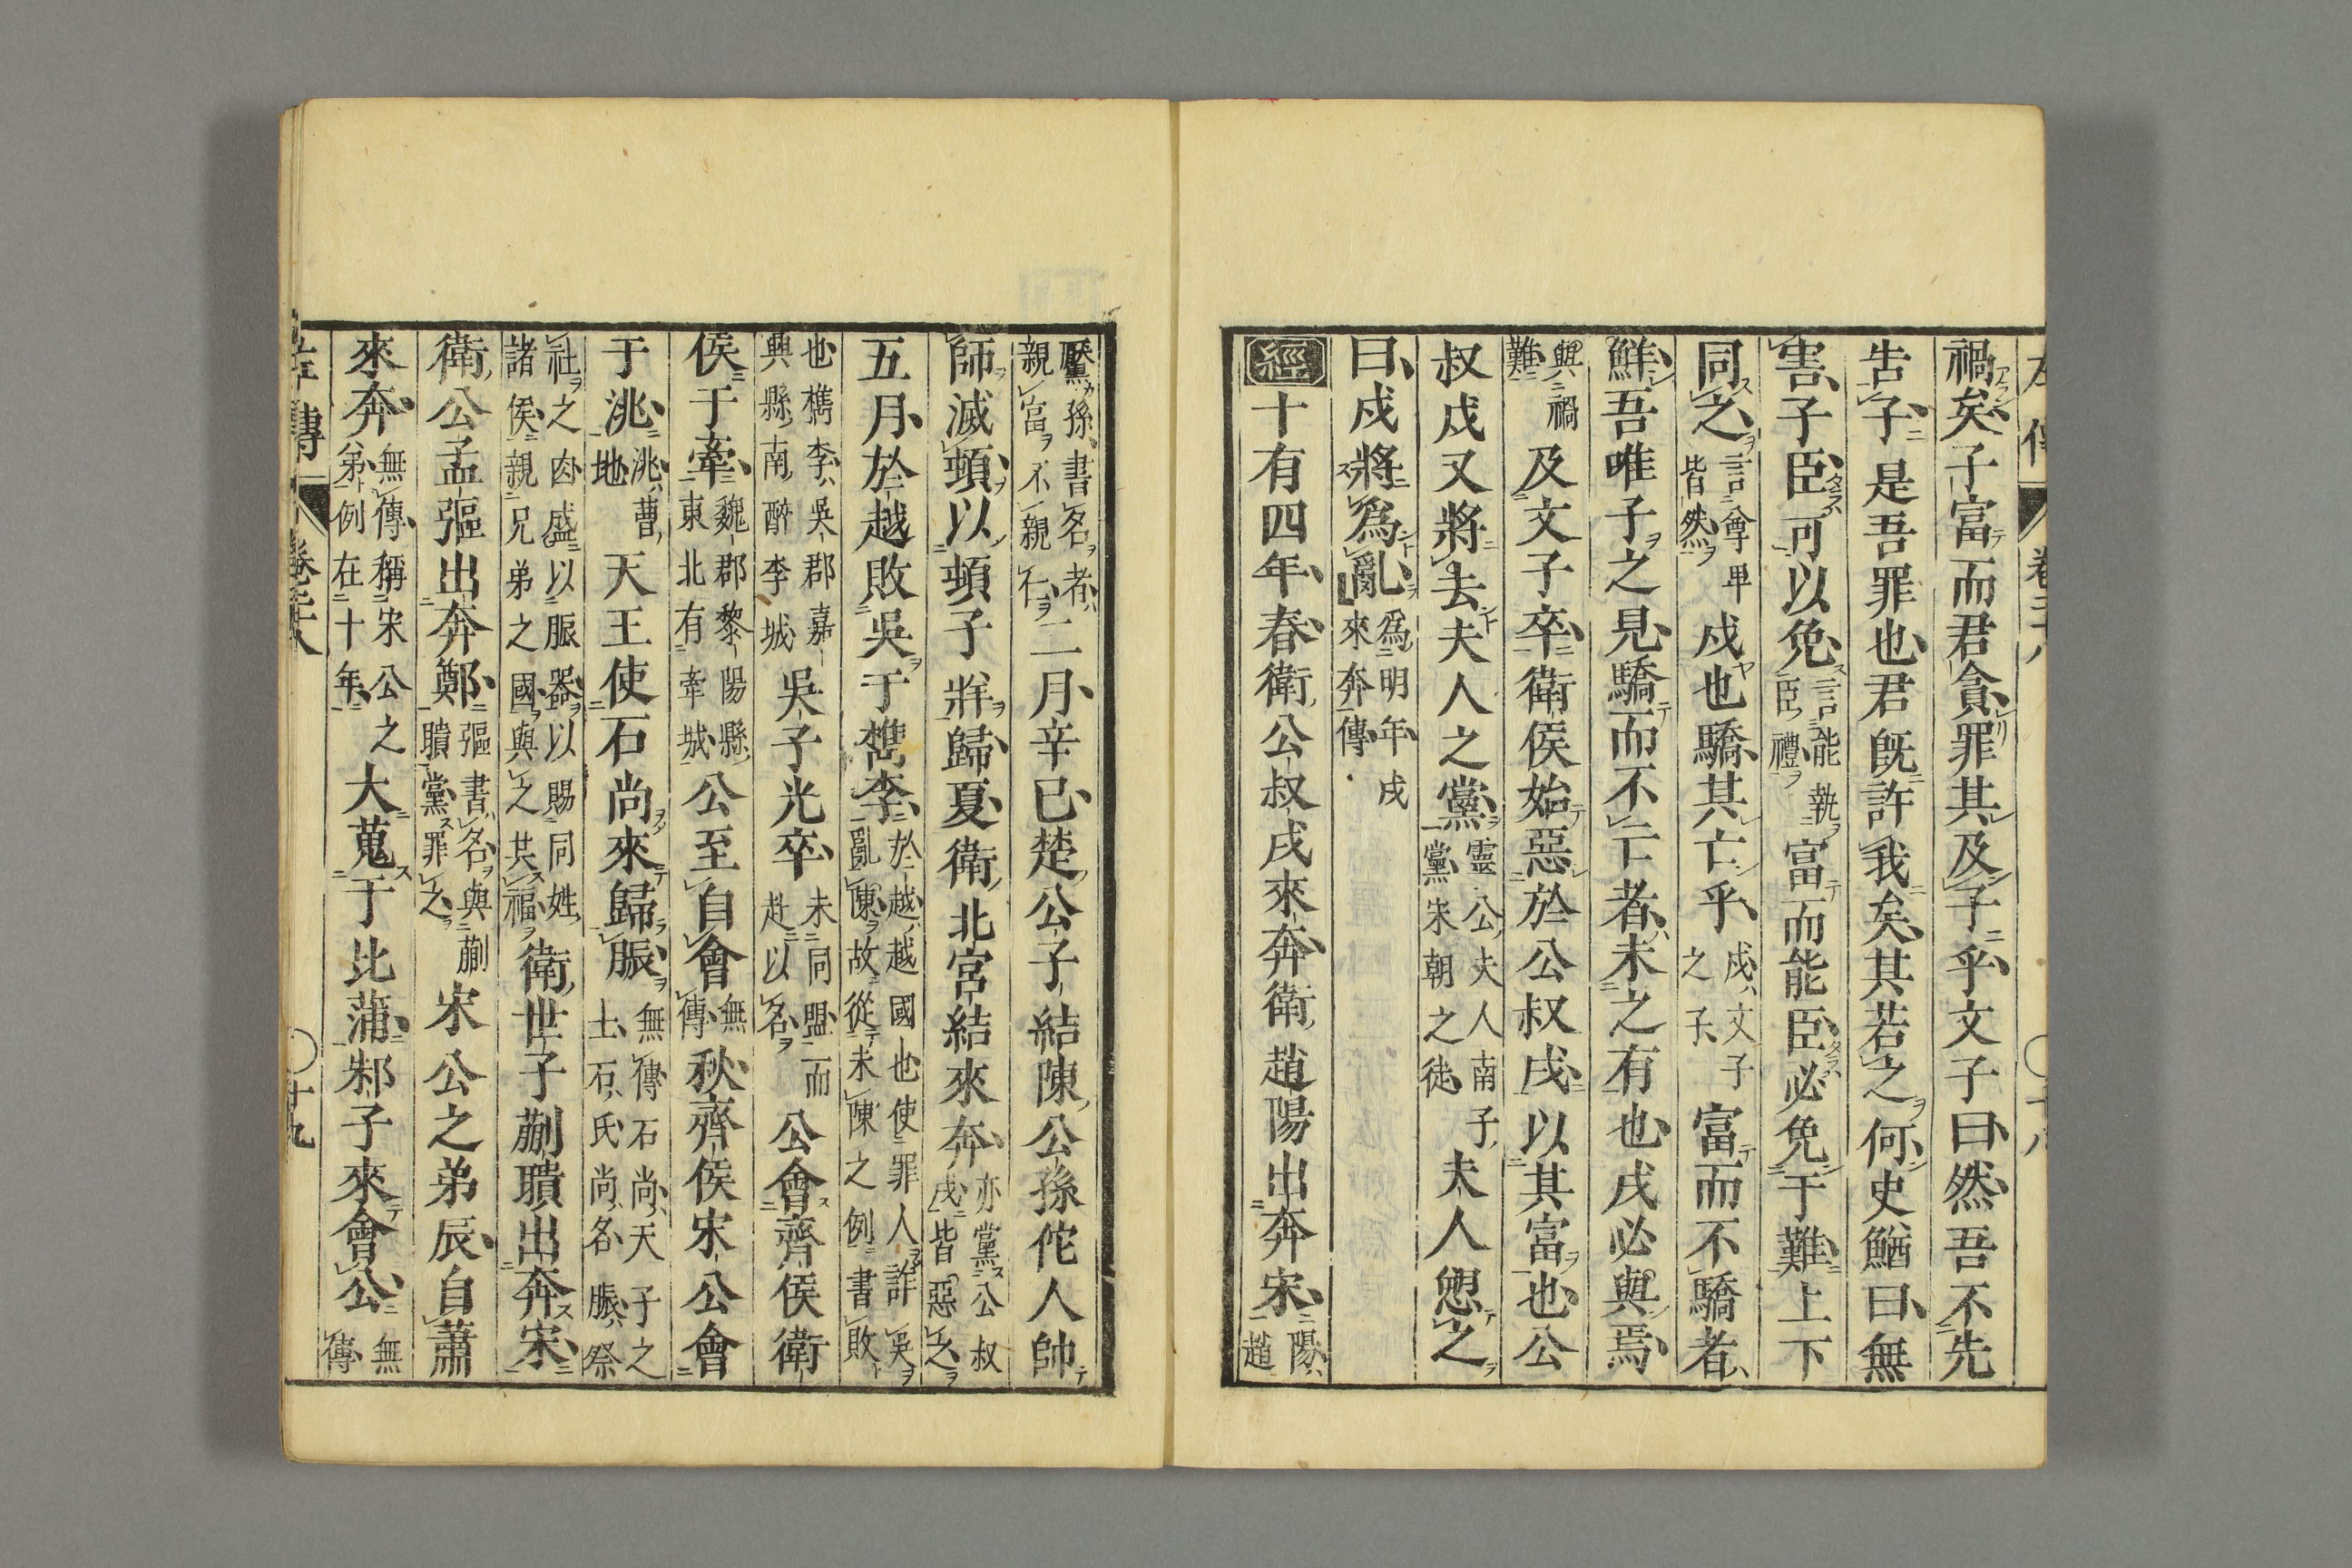 左傳 卷二十八 ○十八
禍矣子富而君貪罪其及子乎文子曰然吾不先
告子是吾罪也君既許我矣其若之何史鰌曰無
害子臣可以免言能執臣禮富而能臣必免于難上下
同之言尊卑皆然戍也驕其亡乎戍文子之子富而不驕者
鮮吾唯子之見驕而不亡者未之有也戍必與焉
與禍難及文子卒衛侯始惡於公叔戍以其富也公
叔戍又將去夫人之黨靈公夫人南子黨宋朝之徒夫人愬之
曰戍將爲亂爲明年戍來奔傳
經十有四年春衛公叔戍來奔衛趙陽出奔宋陽趙
黶孫書名者親富不親仁二月辛巳楚公子結陳公孫佗人帥
師滅頓以頓子牂歸夏衛北宮結來奔亦黨公叔戍皆惡之
五月於越敗吳于檇李於越越國也使罪人詐吳亂陳故從未陳之例書敗
也檇李吳郡嘉興縣南醉李城吳子光卒未同盟而赴以名公會齊侯衛
侯于牽魏郡黎陽縣東北有牽城公至自會無傳秋齊侯宋公會
于洮洮曹地天王使石尚來歸脤無傳石尚天子之士石氏尚名脤祭
社之肉盛以脤器以賜同姓諸侯親兄弟之國與之共福衛世子蒯聵出奔宋
衛公孟彄出奔鄭彄書名與蒯聵黨罪之宋公之弟辰自蕭
來奔無傳稱宋公之弟例在十年大蒐于比蒲邾子來會公無傳
左傳 卷二十八 ○十九